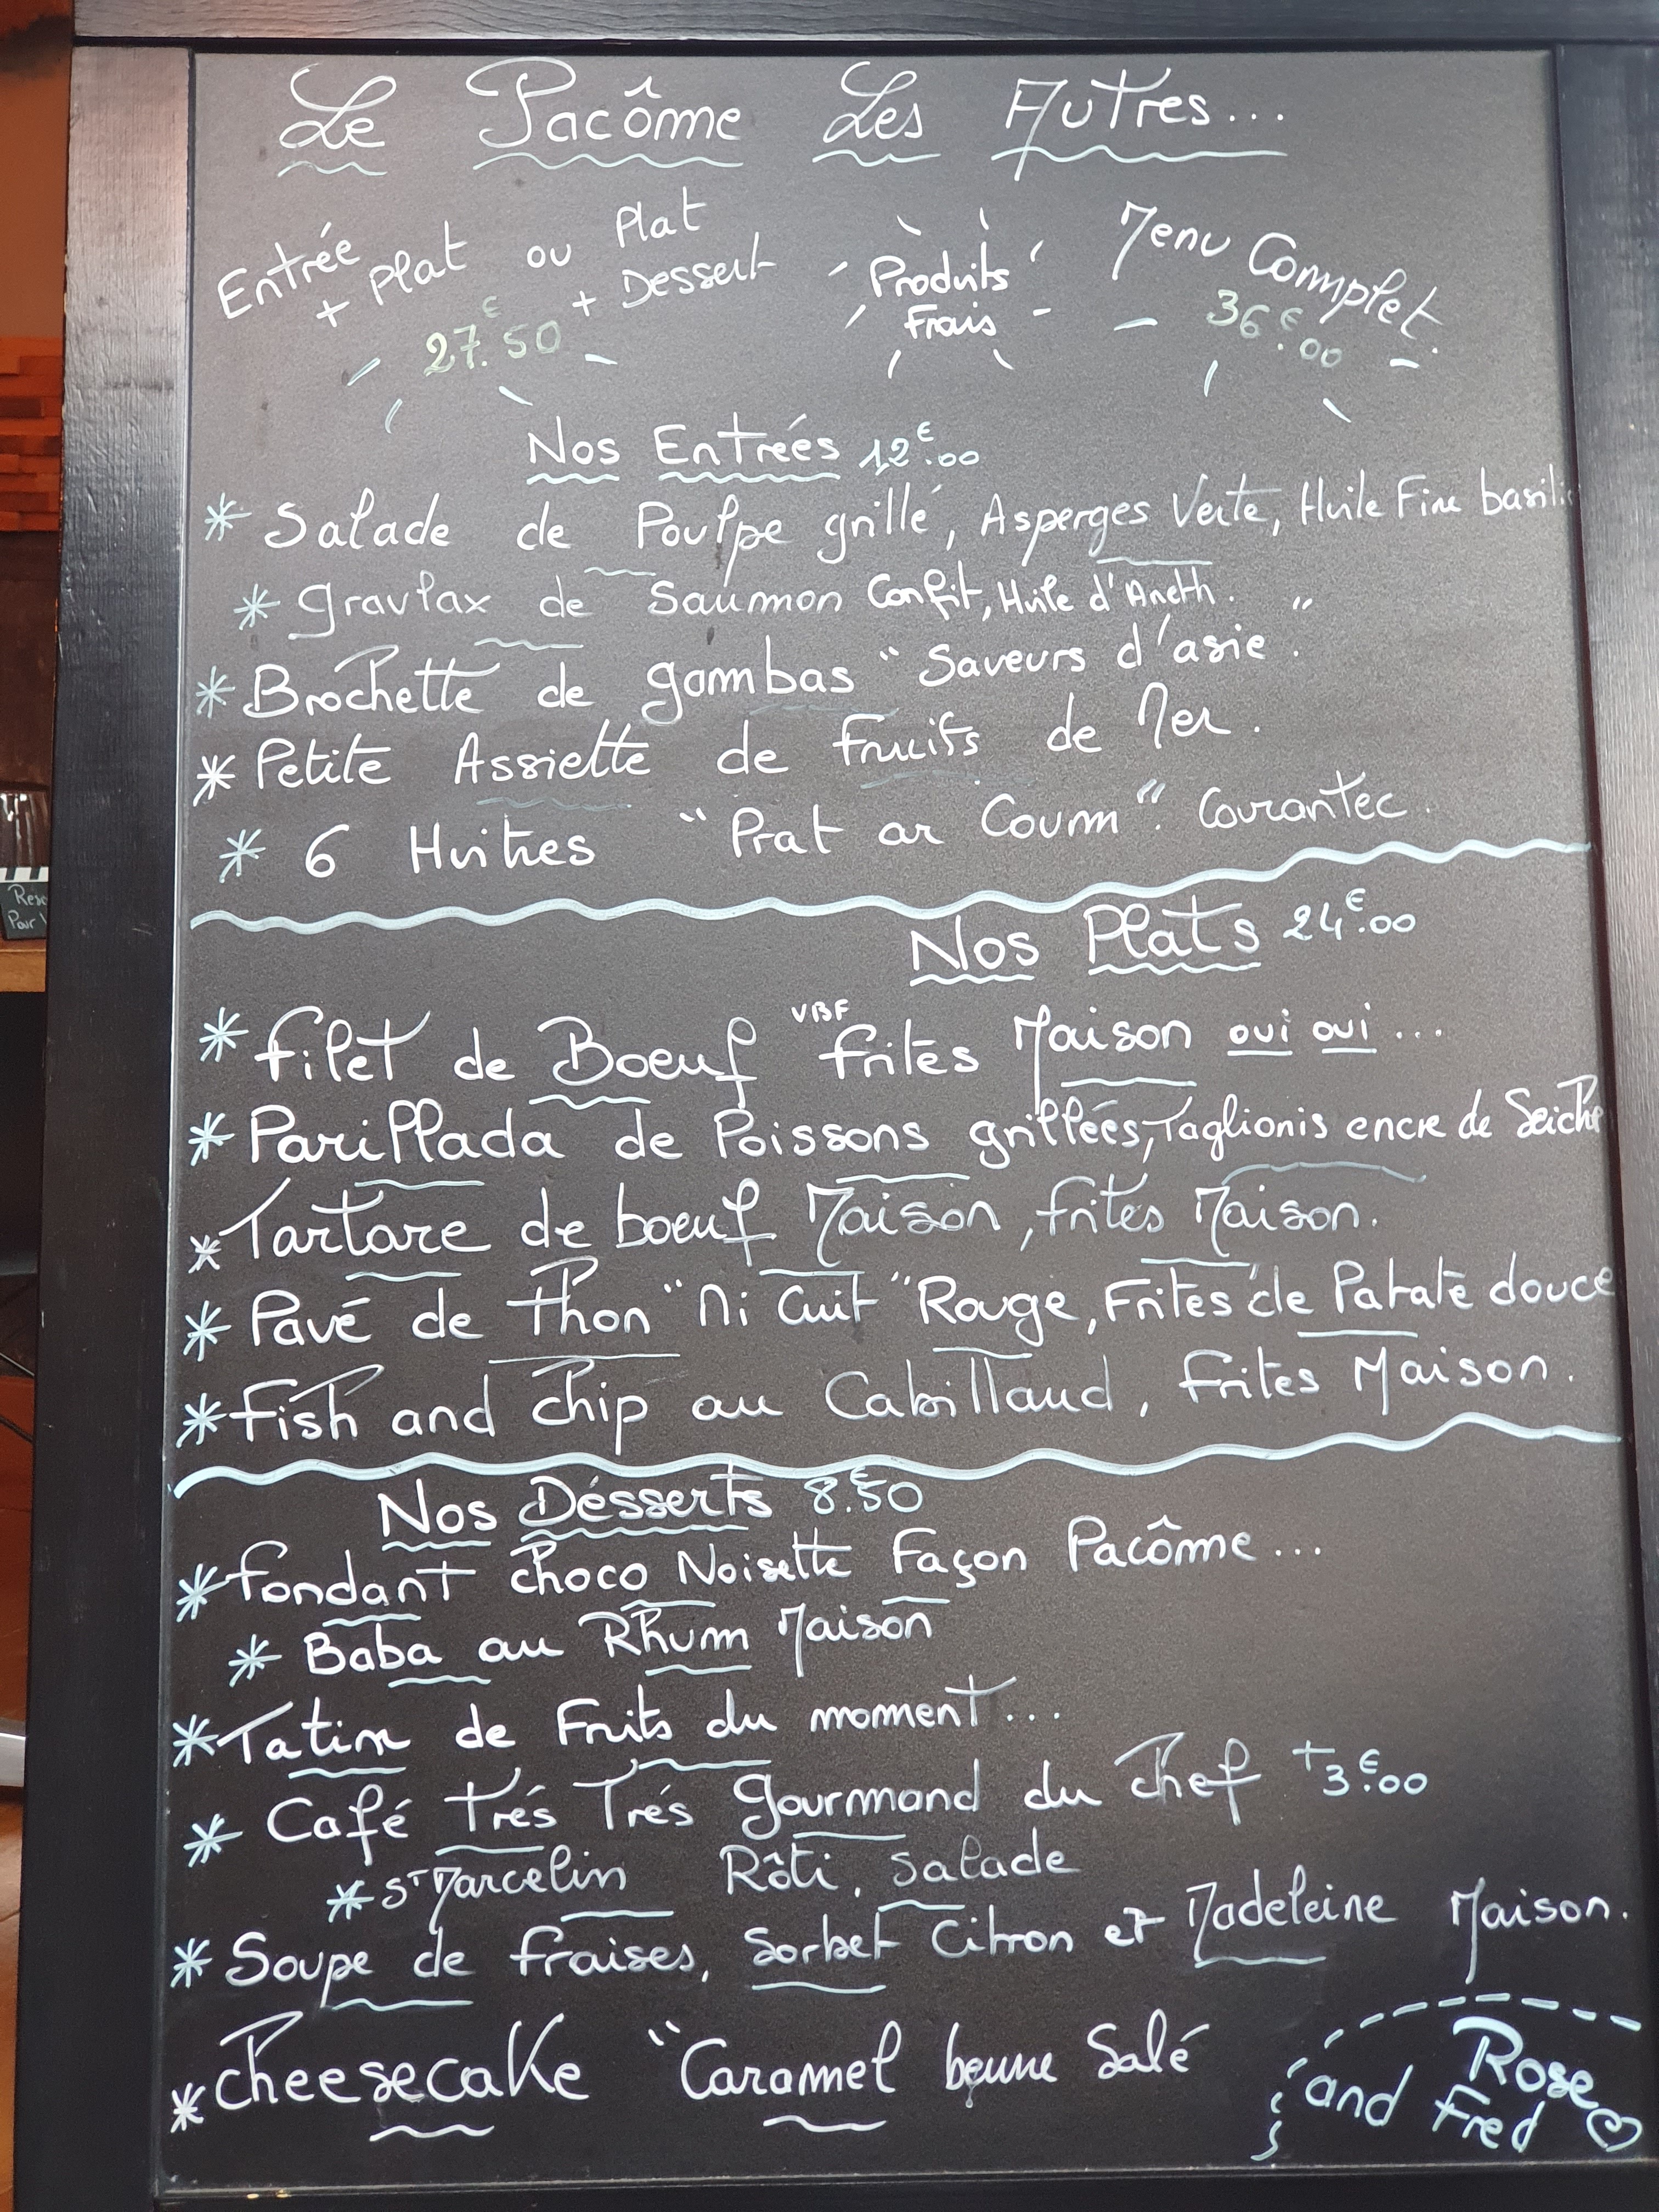 Le Pacôme Les Autres...
Entrée + Plat ou Plat + Dessert
27€.50
Produits Frais
Menu Complet.
36€.00
Nos Entrées 12€.00
* Salade de Poulpe grillé, Asperges Verte, Huile Fine basilic
* Gravlax de Saumon Confit, Huile d'Aneth.
* Brochette de gambas "Saveurs d'asie."
* Petite Assiette de Fruits de Mer.
* 6 Huitres "Prat ar Coum". Courantec.
Nos Plats 24€.00
* Filet de Boeuf VBF Frites Maison oui oui...
* Parillada de Poissons grillées, Taglionis encre de Seiche
* Tartare de boeuf Maison, frites Maison.
* Pavé de Thon "Ni Cuit" Rouge, Frites de Patate douce
* Fish and Chip au Cabillaud, Frites Maison.
Nos Désserts 8€.50
* Fondant Choco Noisette Façon Pacôme...
* Baba au Rhum Maison
* Tatin de Fruits du moment...
* Café Trés Trés Gourmand du Chef +3€.00
* St Marcelin Rôti, Salade
* Soupe de Fraises, Sorbet Citron et Madeleine Maison.
* Cheesecake "Caramel beurre Salé
Rose
and Fred